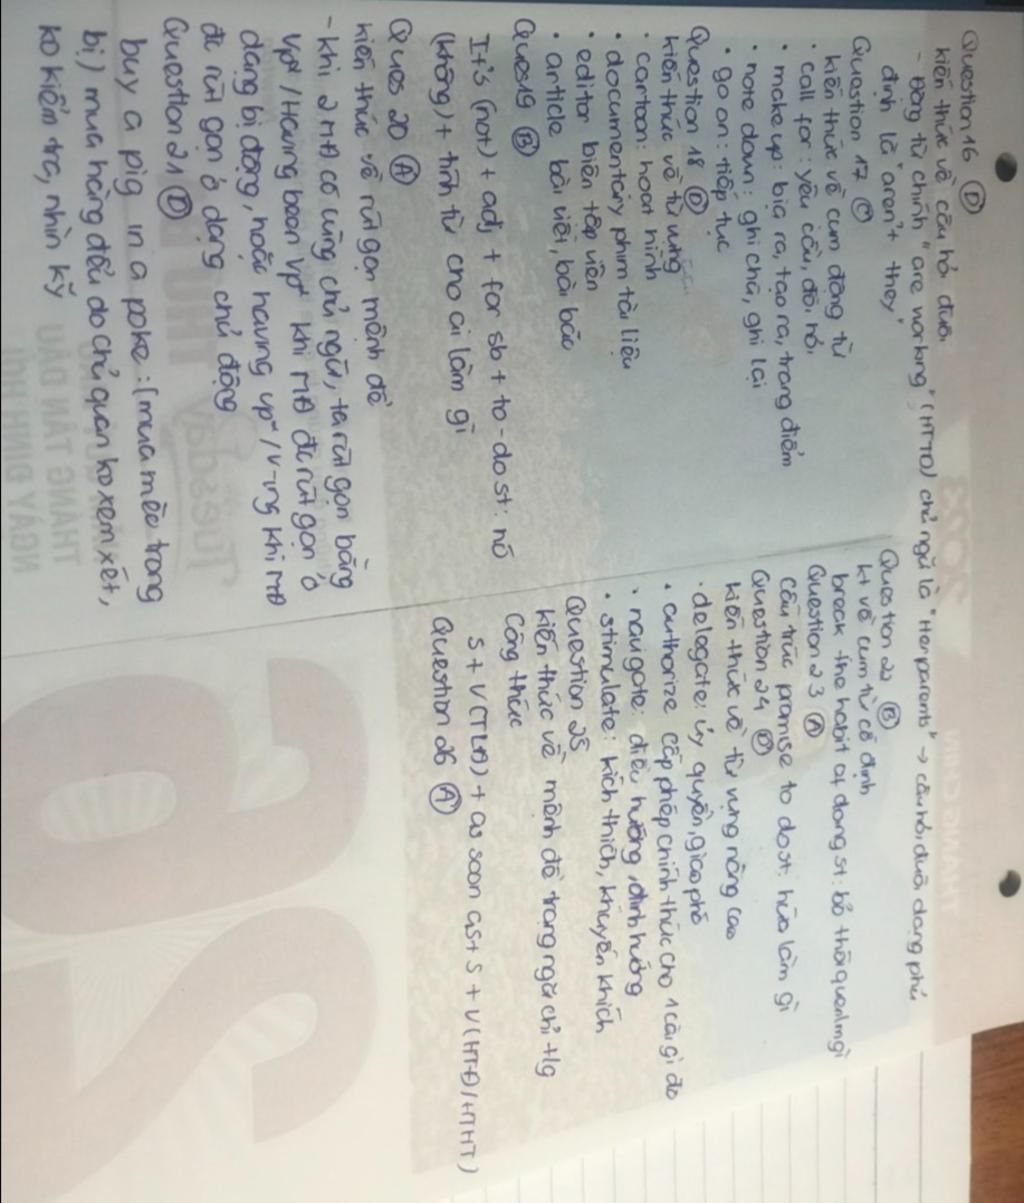 Question 16 (D)
kiến thức về câu hỏi đuôi
- Động từ chính "are working" (HTTD) chủ ngữ là "Her parents" → câu hỏi đuôi dạng phủ
định là "aren't they"
Question 17 (C)
kiến thức về cụm động từ
• call for: yêu cầu, đòi hỏi
• make up: bịa ra, tạo ra, trang điểm
• note down: ghi chú, ghi lại
• go on: tiếp tục
Question 18 (D)
kiến thức về từ vựng
• cartoon: hoạt hình
• documentary phim tài liệu
• editor biên tập viên
• article bài viết, bài báo
Ques 19 (B)
It's (not) + adj + for sb + to-do st: nó
(không) + tính từ cho ai làm gì
Ques 20 (A)
kiến thức về rút gọn mệnh đề
- khi 2 MĐ có cùng chủ ngữ, ta rút gọn bằng
VpII / Having been VpII khi MĐ đc rút gọn ở
dạng bị động, hoặc having VpII / V-ing khi MĐ
đc rút gọn ở dạng chủ động
Question 21 (D)
buy a pig in a poke: (mua mèo trong
bị) mua hàng gì đều do chủ quan ko xem xét,
ko kiểm tra, nhìn kỹ
Question 22 (B)
kt về cụm từ cố định
break the habit of doing st: bỏ thói quen làm gì
Question 23 (A)
cấu trúc promise to do st: hứa làm gì
Question 24
kiến thức về từ vựng nâng cao
• delegate: ủy quyền, giao phó
• authorize cấp phép chính thức cho 1 cái gì đó
• navigate: điều hướng, định hướng
• stimulate: kích thích, khuyến khích
Question 25
kiến thức về mệnh đề trạng ngữ chỉ tg
Công thức
S + V(TLĐ) + as soon as + S + V(HTĐ/HTHT)
Question 26 (A)